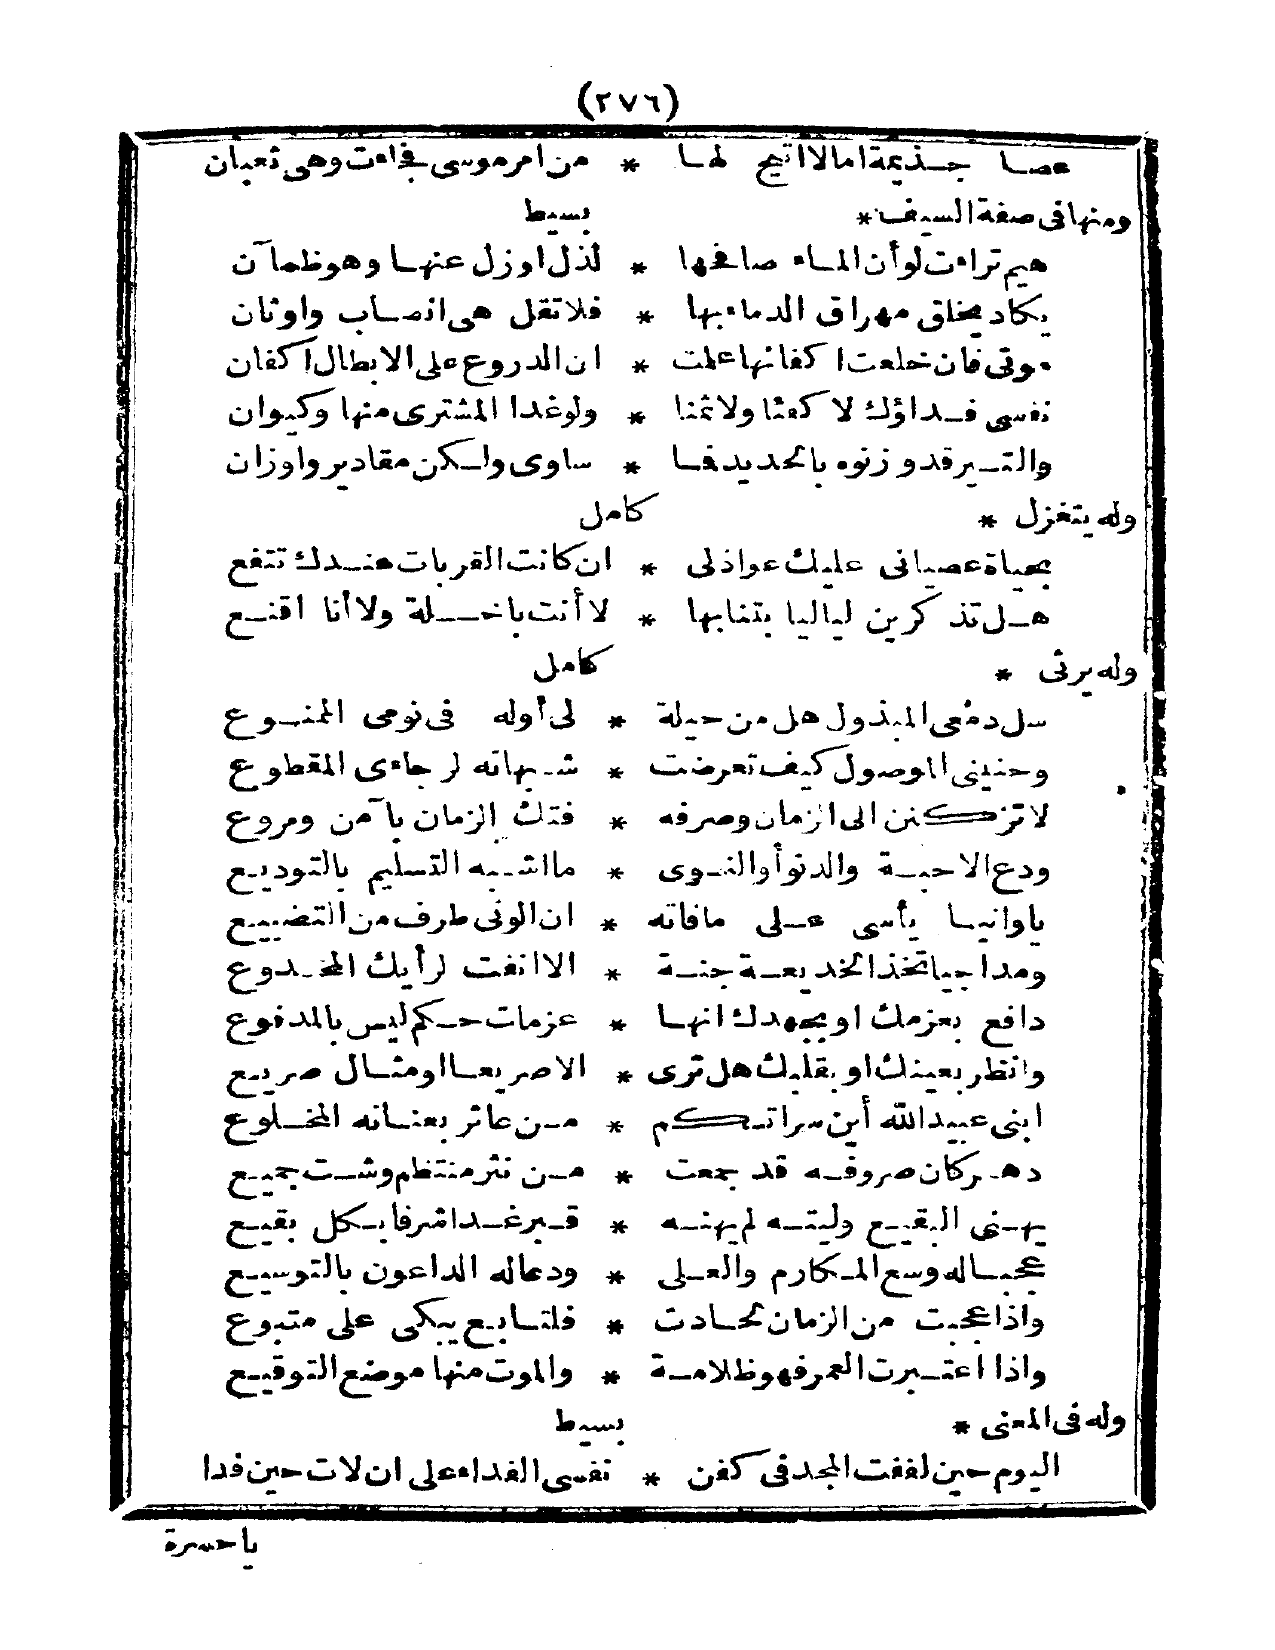 (٢٧٦)
عصا جذيمة امالا اتيح لها * من امر موسى فجاءت وهى ثعبان
ومنها فى صفة السيف * بسيط
هيم تراءت لو أن الماء صافحها * لذل او زل عنها وهو ظمآن
يكاد يخلق مهراق الدماء بها * فلا تقل هى انصاب واوثان
موتى فان خلعت اكفانها علمت * ان الدروع على الابطال اكفان
نفسى فداؤك لا كفئا ولا ثمنا * ولو غدا المشترى منها وكيوان
والتبر قد وزنوه بالحديد فما * ساوى ولكن مقادير واوزان
وله يتغزل * كامل
بحياة عصيانى عليك عواذلى * ان كانت القربات عندك تنفع
هل تذكرين لياليا بتنابها * لا أنت باخلة ولا أنا اقنع
وله يرثى * كامل
سل دمعى المبذول هل من حيلة * لى أوله فى نومى الممنوع
وحنينى الموصول كيف تعرضت * شبهاته لرجاءى المقطوع
لا تركنن الى الزمان وصرفه * فتك الزمان بآمن ومروع
ودع الاحبة والدنو أو النوى * ما اشبه التسليم بالتوديع
ياوانيا يأسى على مافاته * ان الونى طرف من التضييع
ومداجيا تخذ الخديعة جنة * الا انفت لرأيك المخدوع
دافع بعزمك او بجهدك انها * عزمات حكم ليس بالمدفوع
وانظر بعينك او بقلبك هل ترى * الا صريعا او مثال صريع
ابنى عبيد الله أين سراتكم * من عاثر بعنانه المخلوع
دهر كان صروفه قد جمعت * من نثر منتظم وشت جميع
يهنى البقيع وليته لم يهنه * قبر غدا شرفا بكل بقيع
عجبا له وسع المكارم والعلى * ودعاله الداعون بالتوسيع
واذا عجبت من الزمان لحادث * فلتابع يبكى على متبوع
واذا اعتبرت العمر فهو ظلامة * والموت منها موضع التوقيع
وله فى المعنى * بسيط
اليوم حين لففت المجد فى كفن * نفسى الفداء على ان لات حين فدا
ياحسرة